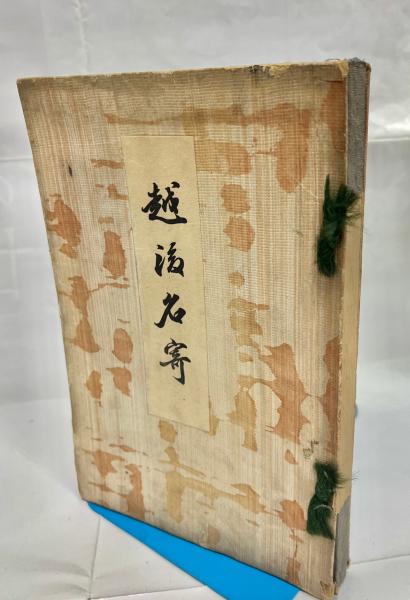 越後名寄